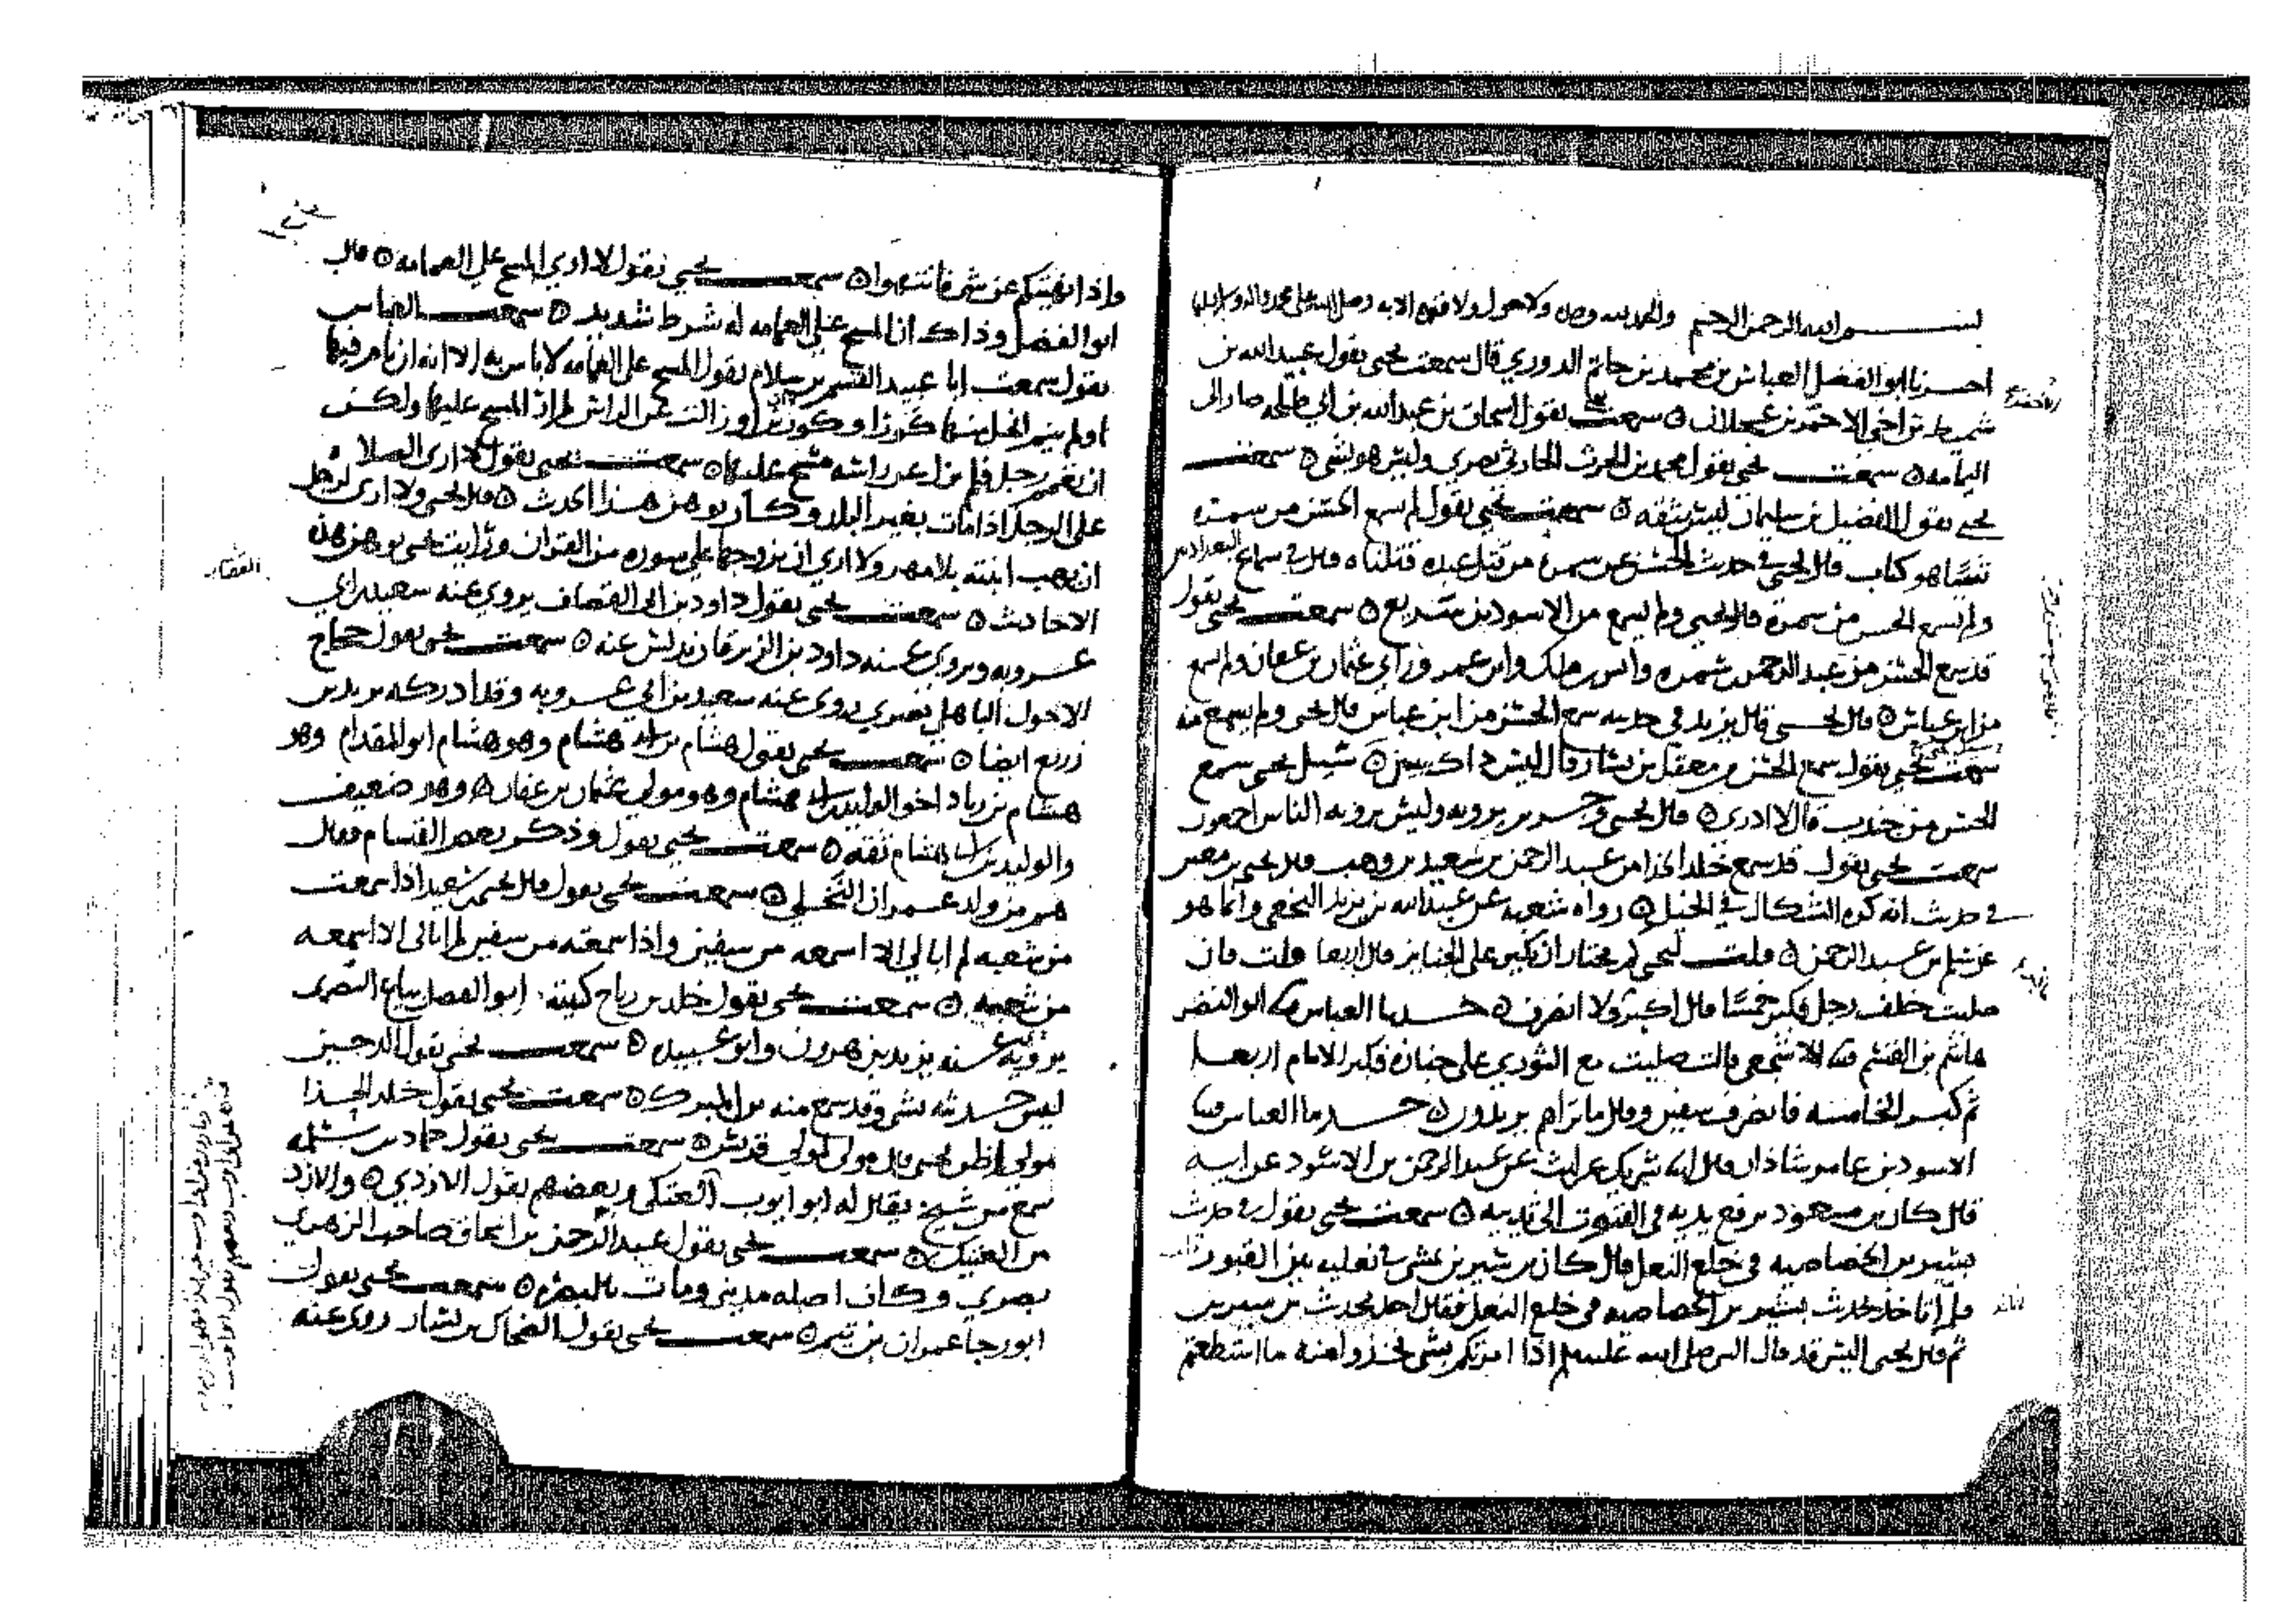 بسم الله الرحمن الرحيم والحمد لله وحده ولا حول ولا قوة الا به وصلى الله على محمد واله وسلم
اخبرنا ابو الفضل العباس بن محمد بن حاتم الدوري قال سمعت يحيى يقول عبيد الله بن
شميط بن اخي الاخضر بن عجلان ه سمعت يحيى يقول اسحاق بن عبد الله بن ابي طلحه صار الى
اليمامه ه سمعت يحيى يقول محمد بن الحرث الحارثي بصري وليس هو بشي ه سمعت
يحيى يقول الفضيل بن سليمان ليس بثقه ه سمعت يحيى يقول لم يسمع الحسن من سمره
شيئا هو كتاب قال يحيى في حديث الحسن عن سمره من قتل عبده قتلناه قال في سماع البغداديين
ولم يسمع الحسن من سمرة قال يحيى ولم يسمع من الاسود بن سريع ه سمعت يحيى يقول
قد سمع الحسن من عبد الرحمن بن سمره وانس بن ملك وابن عمر وراى عثمان بن عفان ولم يسمع
من ابن عباس ه قال يحيى قال يزيد في حديثه سمع الحسن من ابن عباس قال يحيى ولم يسمع منه
سمعت يحيى يقول سمع الحسن من معقل بن يسار قال ليس ذاك ه سئل يحيى سمع
الحسن من جندب قال لا ادري ه قال يحيى وجرير يرويه وليس يرويه الناس اجمعون
سمعت يحيى يقول قد سمع خلد الحذا من عبد الرحمن بن سعيد بن وهب قال يحيى بن معين
في حديث انه كره الشكال في الخيل ه رواه شعبه عن عبد الله بن يزيد النخعي وانما هو
عن سلم بن عبد الرحمن ه قلت ليحيى كم تختار ان تكبر على الجنايز قال اربعا قلت فان
صليت خلف رجل وكبر خمسا قال اكبر لا انصرف ه حدثنا العباس ثنا ابو النضر
هاشم بن القسم ثنا الاشجعي قال صليت مع الثوري على جنازة فكبر الامام اربعا
ثم كبر الخامسه فانصرف سفين وقال ما تراهم يريدون ه حدثنا العباس ثنا
الاسود بن عامر شاذان قال ثنا شريك عن ليث عن عبد الرحمن بن الاسود عن ابيه
قال كان بن مسعود يرفع يديه في القنوت الى ثدييه ه سمعت يحيى يقول في حديث
بشير بن الخصاصيه في خلع النعل قال كان بن سيرين يمشي في نعليه بين القبور
بشير بن الخصاصيه في خلع النعل فقال احد يحدث بن سيرين
ثم قال يحيى اليس قد قال النبي صلى الله عليه وسلم اذا امرتكم بشي فخذوا منه ما استطعتم
واذا نهيتكم عن شي فانتهوا ه سمعت يحيى يقول لا ارى المسح على العمامه ه قال
ابو الفضل وذاك ان المسح على العمامه له شرط شديد ه سمعت العباس
يقول سمعت ابا عبيد القسم بن سلام يقول المسح على العمامه لا باس به الا انه ان تامر فيها
او لم يتم كورا وكورين او زالت عن الراس لم ار المسح عليها ولكن
ان تعمم رجل فلم تزل عن راسه مسح عليها ه سمعت يحيى يقول لا ارى الصلاة
على الرجل اذا مات بغير البلد وكان يوهن هذا الحديث ه قال يحيى ولا ارى لرجل
ان يهب ابنته بلا مهر ولا ارى ان يزوجها على سوره من القران ورايت يحيى يوهن هذه
الاحاديث ه سمعت يحيى يقول داود بن ابي القصاف يروي عنه سعيد بن ابي
عروبه ويروي عنه داود بن الزبرقان ه سمعت يحيى يقول حجاج
الاحول الباهلي بصري يروي عنه سعيد بن ابي عروبه وقد ادركه يزيد بن
زريع ايضا ه سمعت يحيى يقول هشام بن ابي هشام وهو هشام ابو المقدام وهو
هشام بن زياد اخو الوليد بن ابي هشام وهو مولى عثمان بن عفان ه وهو ضعيف
والوليد بن ابي هشام ثقه ه سمعت يحيى يقول وذكر القسام فقال
هم من ولد عمران ه سمعت يحيى يقول قال يحيى بن سعيد اذا سمعت
من شعبه لم ابالي الا اسمعه من سفين واذا سمعته من سفين لم ابالي الا اسمعه
من شعبه ه سمعت يحيى يقول خلد بن رباح كنيته ابو الفضل بصري
يروي عنه يزيد بن هرون وابو عبيده ه سمعت يحيى يقول الدجين
ليس حديثه بشي وقد سمع منه بن المبارك ه سمعت يحيى يقول خلد الحذا
مولى اظن يحيى قال مولى لقريش ه سمعت يحيى يقول حماد بن سلمه
سمع من شيخ يقال له ابو ايوب العتكي وبعضهم يقول الازدي ه والازد
من العتيك ه سمعت يحيى يقول عبد الرحمن بن اسحاق صاحب الزهري
بصري وكان اصله مديني ومات بالبصره ه سمعت يحيى يقول
ابو رجا عمران بن تيم ه سمعت يحيى يقول الضحاك بن يسار روى عنه